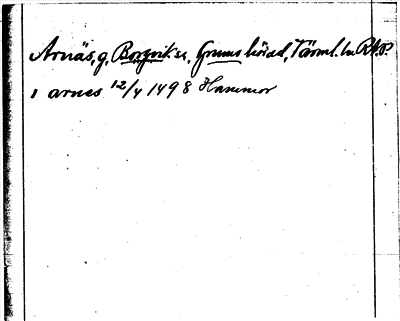 Arnäs, g. Borgvik sn, Grums härad, Värml. ln RAP.
i arnes 12/4 1498 Hammor